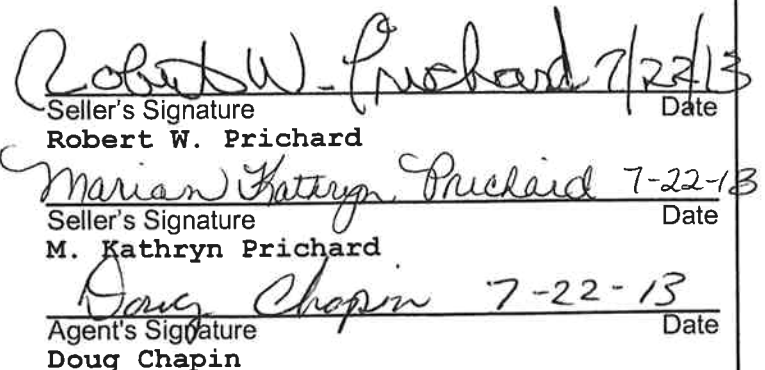 Robert W. Prichard 7/22/13
Seller's Signature Date
Robert W. Prichard
Marian Kathryn Prichard 7-22-13
Seller's Signature Date
M. Kathryn Prichard
Doug Chapin 7-22-13
Agent's Signature Date
Doug Chapin